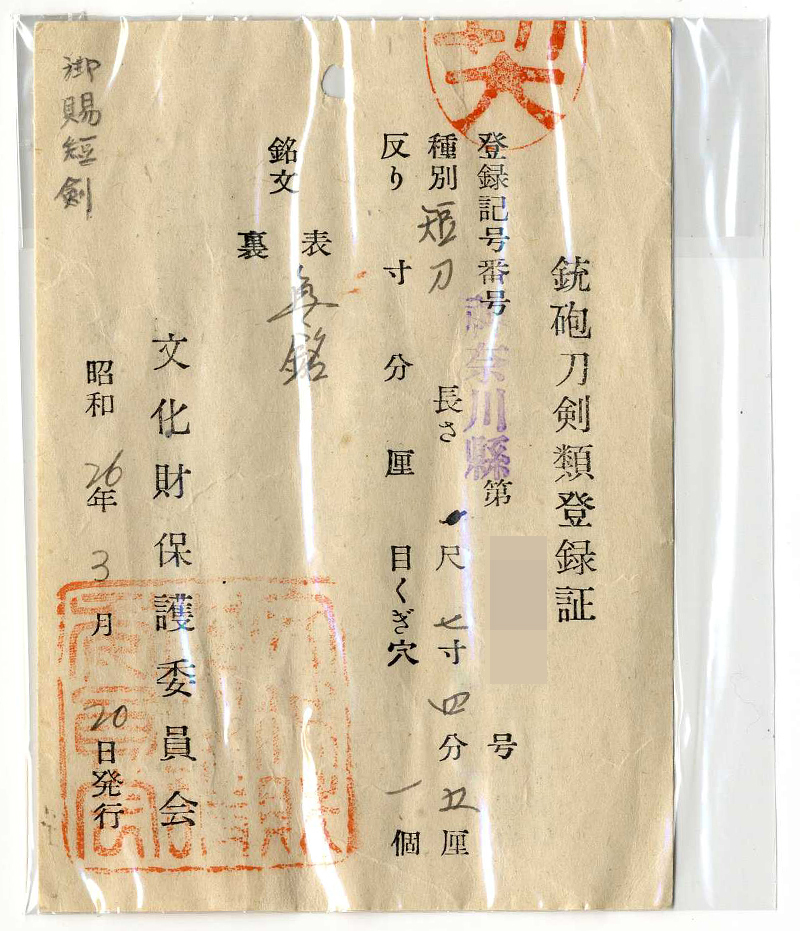 銃砲刀剣類登録証
登録記号番号 神奈川縣 第 号
種別 短刀 長さ 尺 七寸 四分 五厘
反り 寸 分 厘 目くぎ穴 一個
銘文
表 無銘
裏
文化財保護委員会
昭和 26年 3月 20日発行
御賜短剣